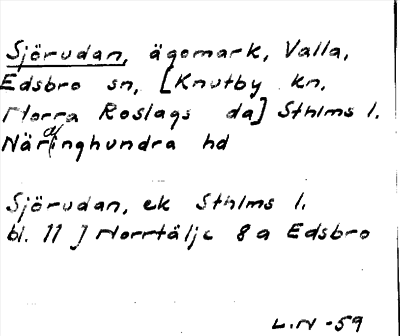 Sjörudan, ägomark, Valla,
Edsbro sn, [Knutby kn.
Norra Roslags da] Sthlms l.
Närdinghundra hd
Sjörudan, ek Sthlms l.
bl. 11 J Norrtälje 8a Edsbro
L.N -59